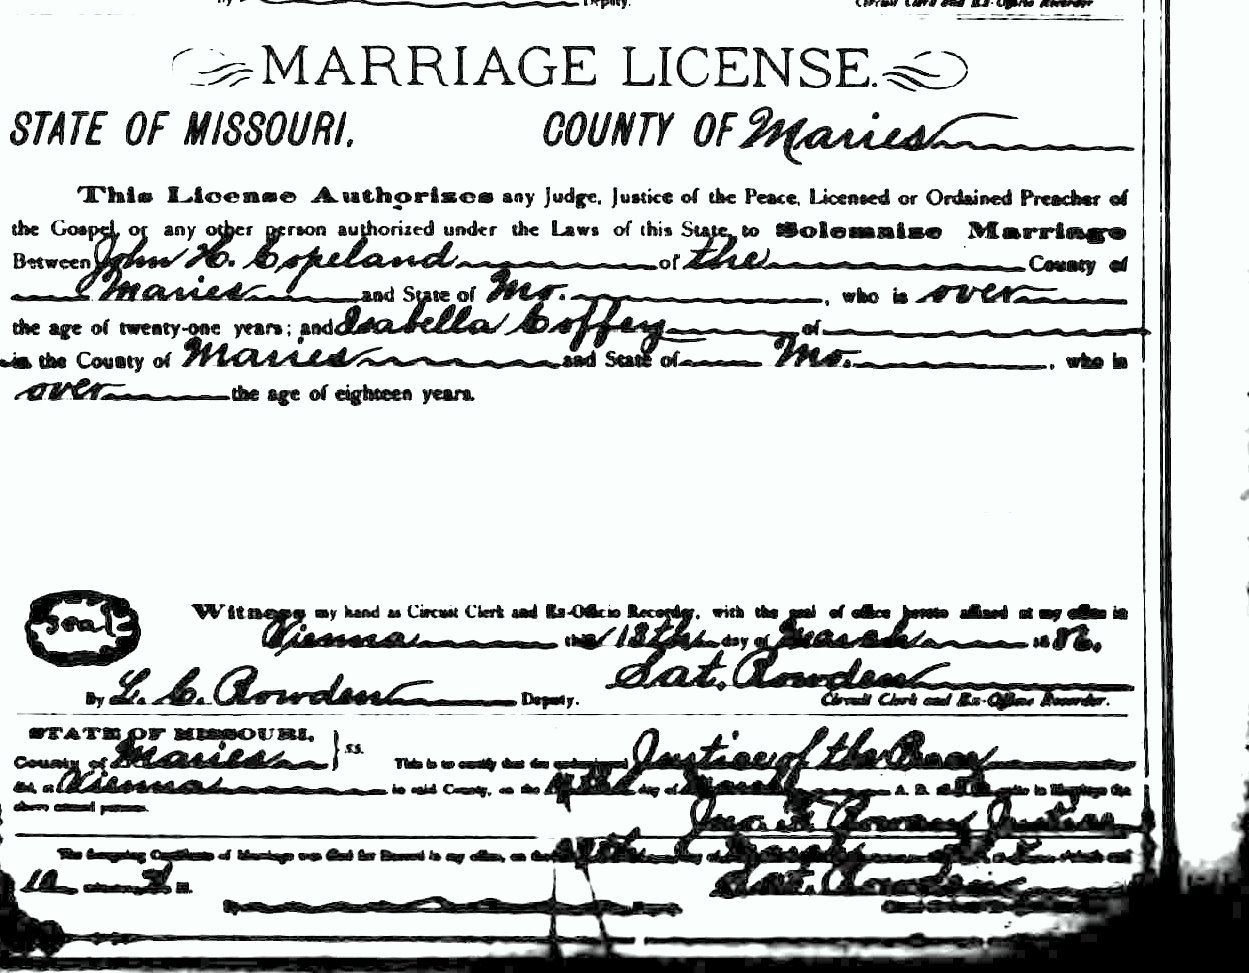 By Deputy. Circuit Clerk and Ex-Officio Recorder
MARRIAGE LICENSE.
STATE OF MISSOURI. COUNTY OF Maries
This License Authorizes any Judge, Justice of the Peace, Licensed or Ordained Preacher of
the Gospel, or any other person authorized under the Laws of this State, to Solemnize Marriage
Between John H. Copeland of the County of
Maries and State of Mo. , who is over
the age of twenty-one years; and Isabella Coffey of
in the County of Maries and State of Mo. , who is
over the age of eighteen years.
Witness my hand as Circuit Clerk and Ex-Officio Recorder, with the seal of office hereto affixed at my office in
Seal
Vienna this 13th day of March 1886.
By L. C. Rowden Deputy. Sat. Rowden
Circuit Clerk and Ex-Officio Recorder.
STATE OF MISSOURI, } ss.
County of Maries This is to certify that the undersigned Justice of the Peace
did, at Vienna in said County, on the day of March A. D. unite in Marriage the
above named persons.
Jno. Justice
The foregoing Certificate of Marriage was filed for Record in my office, on the day of
10 M. Sat. Rowden
By Deputy.